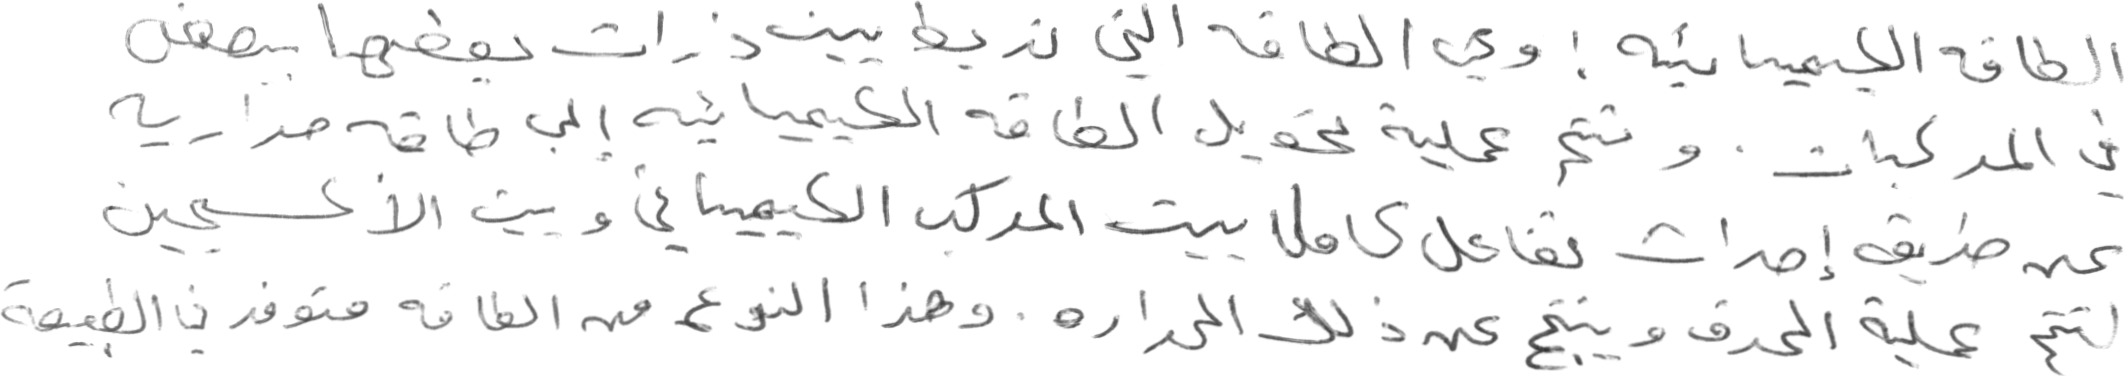 الطاقه الكيميائيه : وهي الطاقه التي تربط بين ذرات بعضها ببعض
في المركبات . وتتم عملية تحويل الطاقه الكيميائيه إلى طاقه حراريه
عن طريقه إحداث تفاعل كاملا بين المركب الكيميائي وبين الأكسجين
لتتم عملية الحرق وينتج عن ذلك الحراره . وهذا النوع من الطاقه متوفر في الطبيعة